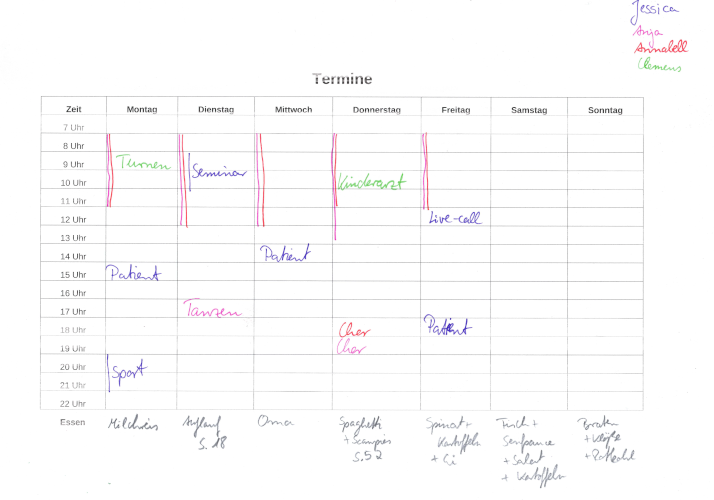 Jessica
Anja
Annabell
Clemens
Termine
Zeit Montag Dienstag Mittwoch Donnerstag Freitag Samstag Sonntag
7 Uhr
8 Uhr
9 Uhr Turnen Seminar
10 Uhr Kinderarzt
11 Uhr
12 Uhr Live-call
13 Uhr
14 Uhr Patient
15 Uhr Patient
16 Uhr
17 Uhr Tanzen
18 Uhr Chor Patient
19 Uhr Chor
20 Uhr Sport
21 Uhr
22 Uhr
Essen Milchreis Auflauf Oma Spaghetti Spinat + Fisch + Braten
S. 18 + Scampies Kartoffeln Senfsauce + Klöße
S. 52 + Ei + Salat + Rotkohl
+ Kartoffeln